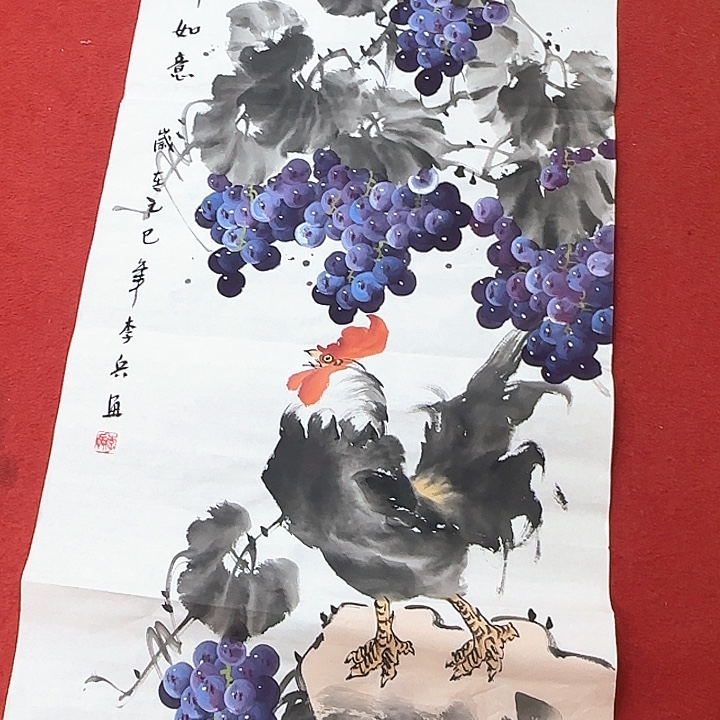 如意
歲在乙巳年李兵畫